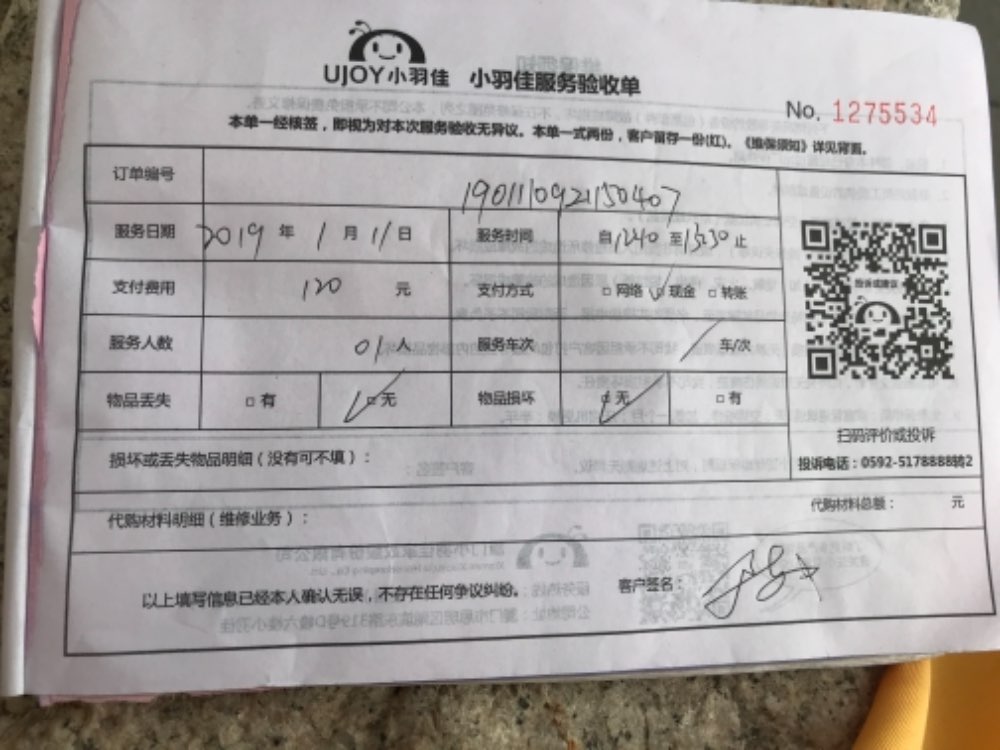 UJOY小羽佳 小羽佳服务验收单
No. 1275534
本单一经核签，即视为对本次服务验收无异议。本单一式两份，客户留存一份(红)。《维保须知》详见背面。
订单编号 190111092150407
服务日期 2019 年 1 月 11 日 服务时间 自1240至1530止
支付费用 120 元 支付方式 □网络 ☑现金 □转账
服务人数 01人 服务车次 / 车/次
物品丢失 □有 ☑无 物品损坏 ☑无 □有
投诉或建议
扫码评价或投诉
投诉电话：0592-5178888转2
损坏或丢失物品明细（没有可不填）：
代购材料明细（维修业务）： 代购材料总额： 元
以上填写信息已经本人确认无误，不存在任何争议纠纷。 客户签名：